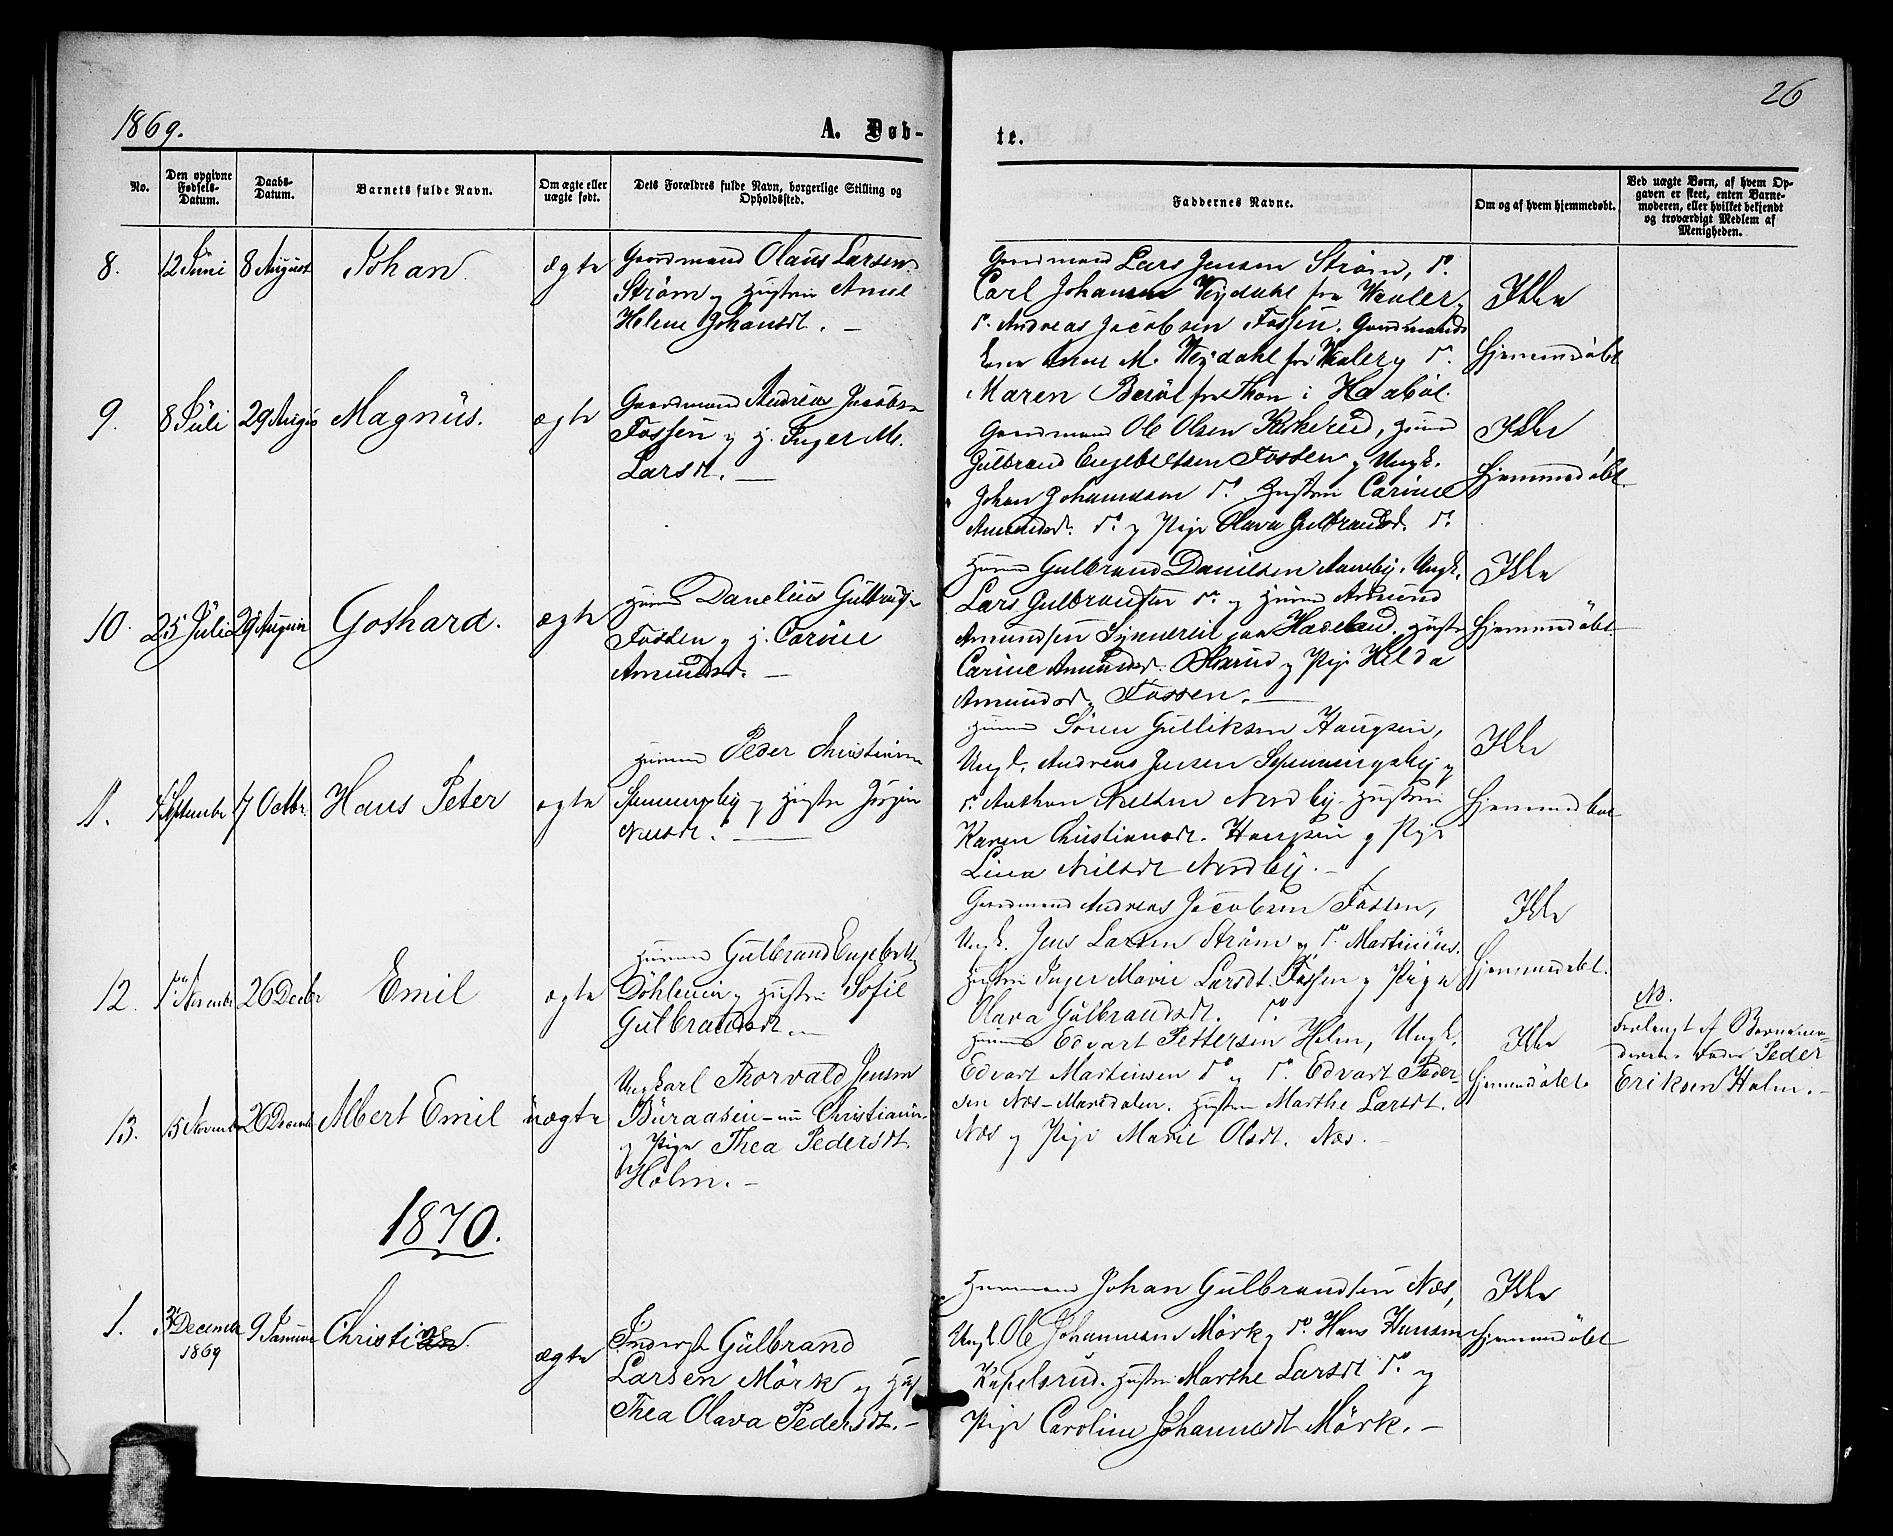 1869.
A. Døb-
te.
26
No.
Den opgivne Fødsels-Datum.
Daabs-Datum.
Barnets fulde Navn.
Om ægte eller uægte født.
Dets Forældres fulde Navn, borgerlige Stilling og Opholdssted.
Faddernes Navne.
Om og af hvem hjemmedøbt.
Ved uægte Børn, af hvem Op-
gaven er skeet, enten Barne-
moderen, eller hvilket bekjendt
og troværdigt Medlem af
Menigheden.
8.
12 Juni
8 August
Johan.
ægte
Gaardmand Olaus Larsen
Strøm og Hustru Anne
Helene Johansdt. —
Gaardmand Lars Jensen Strøm, do.
Carl Johansen Vejdahl fra Vaaler,
do. Andreas Jacobsen Fossen. Gaardmands
Anne M. Vejdahl fra Vaaler og do.
Maren Berøl fra Thon i Haabøl.
Ikke
Hjemmedøbt
9.
8 Juli
29 August
Magnus.
ægte
Gaardmand Andreas Jacobsen
Fossen og H. Inger M.
Larsdt. —
Gaardmand Ole Olsen Kirkerud,
Gulbrand Engebretsen Fossen og Ungk.
Johan Johannesen do. Hustru Carine
Amundsd. do. og Pige Olava Gulbrandsd. do.
Ikke
Hjemmedøbt.
10.
25 Juli
29 August
Gothard.
ægte
Danelius Gulbrands.
Fossen og H. Carine
Amundsd. —
Gulbrand Danielsen Aaneby, Ungk.
Lars Gulbrandsen do. og Amund
Amundsen paa Hadeland. Hustru
Carine Amundsd. og Pige Helda
Amundsd. Fossen. —
Ikke
Hjemmedøbt.
11.
4 September
17 Octbr.
Hans Peter
ægte
Peder Christiansen
Spenningsby og Hustru Jørgine
Nielsdt. —
Søren Gulliksen Haugsen,
Ungk. Andreas Jensen Spenningsby og
do. Anthon Nielsen Nordby. Hustru
Karen Christiansdt. Haugsen og Pige
Lina Nielsdt Nordby. —
Ikke
Hjemmedøbt
12.
1ste November
26 Decbr
Emil
ægte
Gulbrand Engebretsen
Døhlenen og Hustru Sofie
Gulbrandsdt. —
Gaardmand Andreas Jacobsen Fossen,
Ungk. Jens Larsen Strøm og do. Martinius.
Hustru Inger Marie Larsdt. Fossen og Pige
Olava Gulbrandsdt. do.
Ikke
Hjemmedøbt.
13.
15 November
26 December
Albert Emil
uægte
Ungkarl Thorvald Jensen
Buraasen - nu Christiania -
og Pige Thea Pedersdt.
Holm. —
Edvart Pettersen Holm, Ungk.
Edvart Martinsen do. og do. Edvart Peder-
sen Næs-Marsdalen. Hustru Marthe Larsdt.
Næs og Pige Marie Olsdt. Næs. —
Ikke
Hjemmedøbt
No.
Forlangt af Barnemo-
derens Fader Peder
Eriksen Holm. —
1870.
1.
31 December
1869
9 Januar
Christian
ægte
Inderst Gulbrand
Larsen Mørk og Hust
Thea Olava Pedersdt. —
Johan Gulbrandsen Næs,
Ungk. Ole Johannesen Mørk og do. Hans Hansen
Kapelsrud. Hustru Marthe Larsdt do. og
Pige Caroline Johannesdt Mørk. —
Ikke
Hjemmedøbt